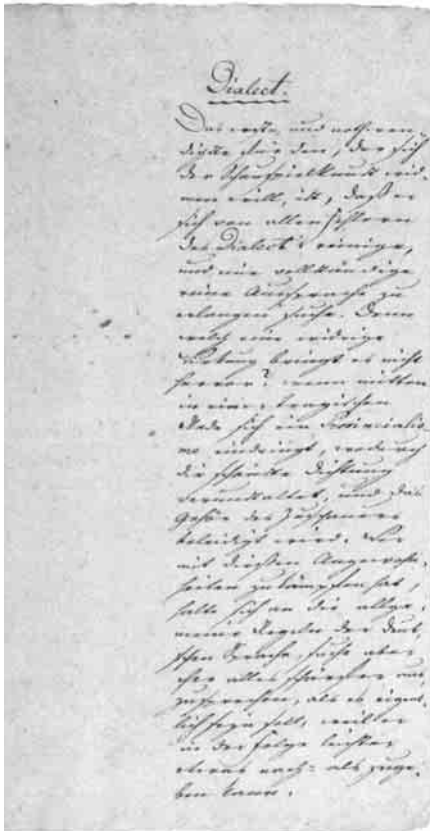 Dialect.
Das erste und nothwen-
digste für den, der sich
der Schauspielkunst wid-
men will, ist, daß er
sich von allen Fehlern
des Dialect's reinige,
und eine vollständige
reine Aussprache zu
erlangen suche. Denn
welch eine widrige
Wirkung bringt es nicht
hervor? wenn mitten
in einer tragischen
Rede sich ein Provincialis-
mus eindringt, wodurch
die schönste Dichtung
verunstaltet, und das
Gehör des Zuschauers
beleidigt wird. Wer
mit diesen Angewohn-
heiten zu kämpfen hat,
halte sich an die allge-
meine Regeln der deut-
schen Sprache, suche aber
eher alles schärfer aus
zusprechen, als es eigent-
lich seyn soll, weil er
in der Folge leichter
etwas nach- als zuge-
ben kann.